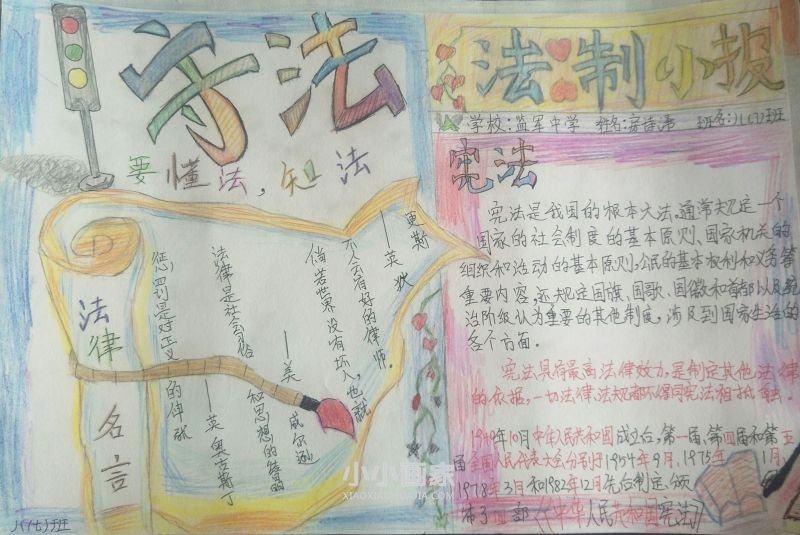 守法
要懂法,知法
法律名言
惩罚是对正义的伸张
——英 奥古斯丁
法律是社会习俗
和思想的结晶
——美 威尔逊
倘若世界没有坏人,也就
不会有好的律师。
——英 狄
更斯
八(七)班
法制小报
学校:监军中学 姓名: 班名:八(7)班
宪法
宪法是我国的根本大法,通常规定一个
国家的社会制度的基本原则、国家机关的
组织和活动的基本原则,公民的基本权利和义务等
重要内容,还规定国旗、国歌、国徽和首都以及统
治阶级认为重要的其他制度,涉及到国家生活的
各个方面。
宪法具有最高法律效力,是制定其他法律
的依据,一切法律、法规都不得同宪法相抵触。
1949年10月中华人民共和国成立后,第一届、第四届和第五
届全国人民代表大会分别于1954年9月、1975年1月
1978年3月和1982年12月先后制定、颁
布了四部《中华人民共和国宪法》
小小画家
XIAOXIAOHUAJIA.COM